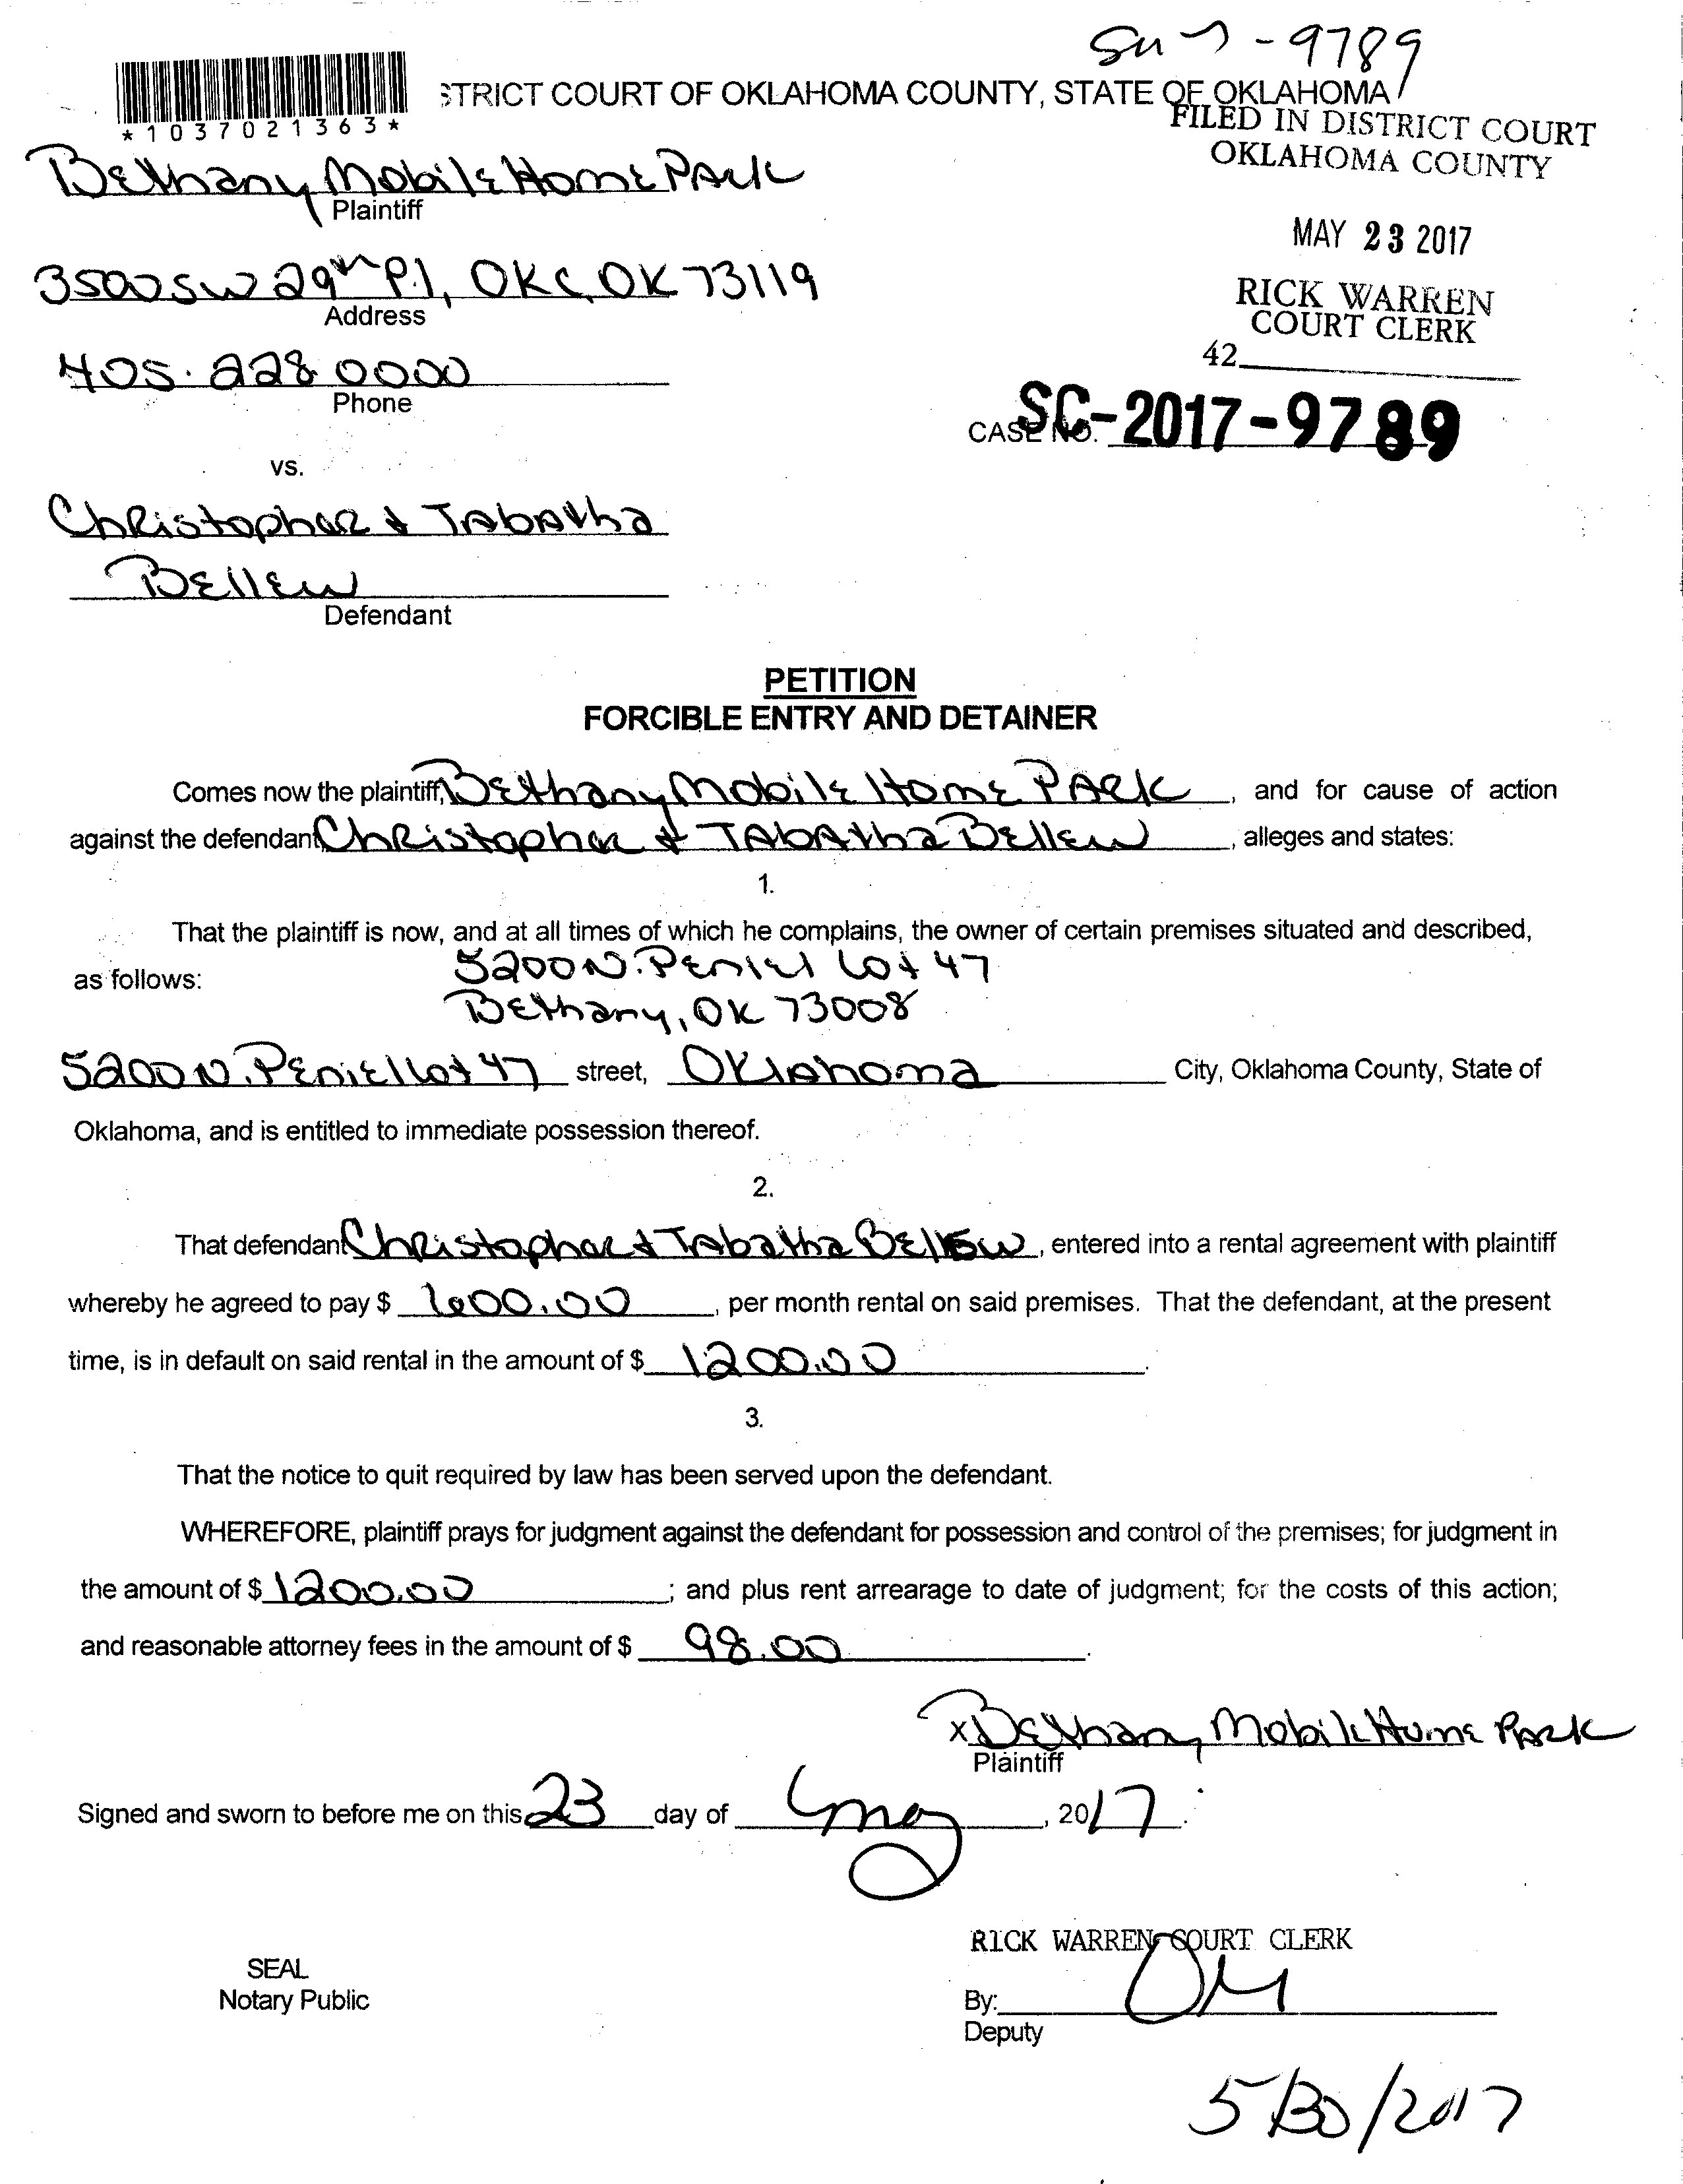 -9789
STRICT COURT OF OKLAHOMA COUNTY, STATE OF OKLAHOMA
*1037021363*
FILED IN DISTRICT COURT
OKLAHOMA COUNTY
Bethany Mobile Home Park
Plaintiff
MAY 23 2017
3500 SW 29th Pl, OKC, OK 73119
Address
RICK WARREN
COURT CLERK
42
405.228.0000
Phone
CASE NO. SC-2017-9789
vs.
Christopher & Tabatha
Bellew
Defendant
PETITION
FORCIBLE ENTRY AND DETAINER
Comes now the plaintiff, Bethany Mobile Home Park, and for cause of action
against the defendant Christopher & Tabatha Bellew, alleges and states:
1.
That the plaintiff is now, and at all times of which he complains, the owner of certain premises situated and described,
as follows: 5200 N. Peniel Lot 47
Bethany, OK 73008
5200 N. Peniel Lot 47 street, Oklahoma City, Oklahoma County, State of
Oklahoma, and is entitled to immediate possession thereof.
2.
That defendant Christopher & Tabatha Bellew, entered into a rental agreement with plaintiff
whereby he agreed to pay $ 600.00, per month rental on said premises. That the defendant, at the present
time, is in default on said rental in the amount of $ 1200.00.
3.
That the notice to quit required by law has been served upon the defendant.
WHEREFORE, plaintiff prays for judgment against the defendant for possession and control of the premises; for judgment in
the amount of $ 1200.00; and plus rent arrearage to date of judgment; for the costs of this action;
and reasonable attorney fees in the amount of $ 98.00.
x Bethany Mobile Home Park
Plaintiff
Signed and sworn to before me on this 23 day of May, 2017.
RICK WARREN COURT CLERK
SEAL
Notary Public
By:
Deputy
5/30/2017